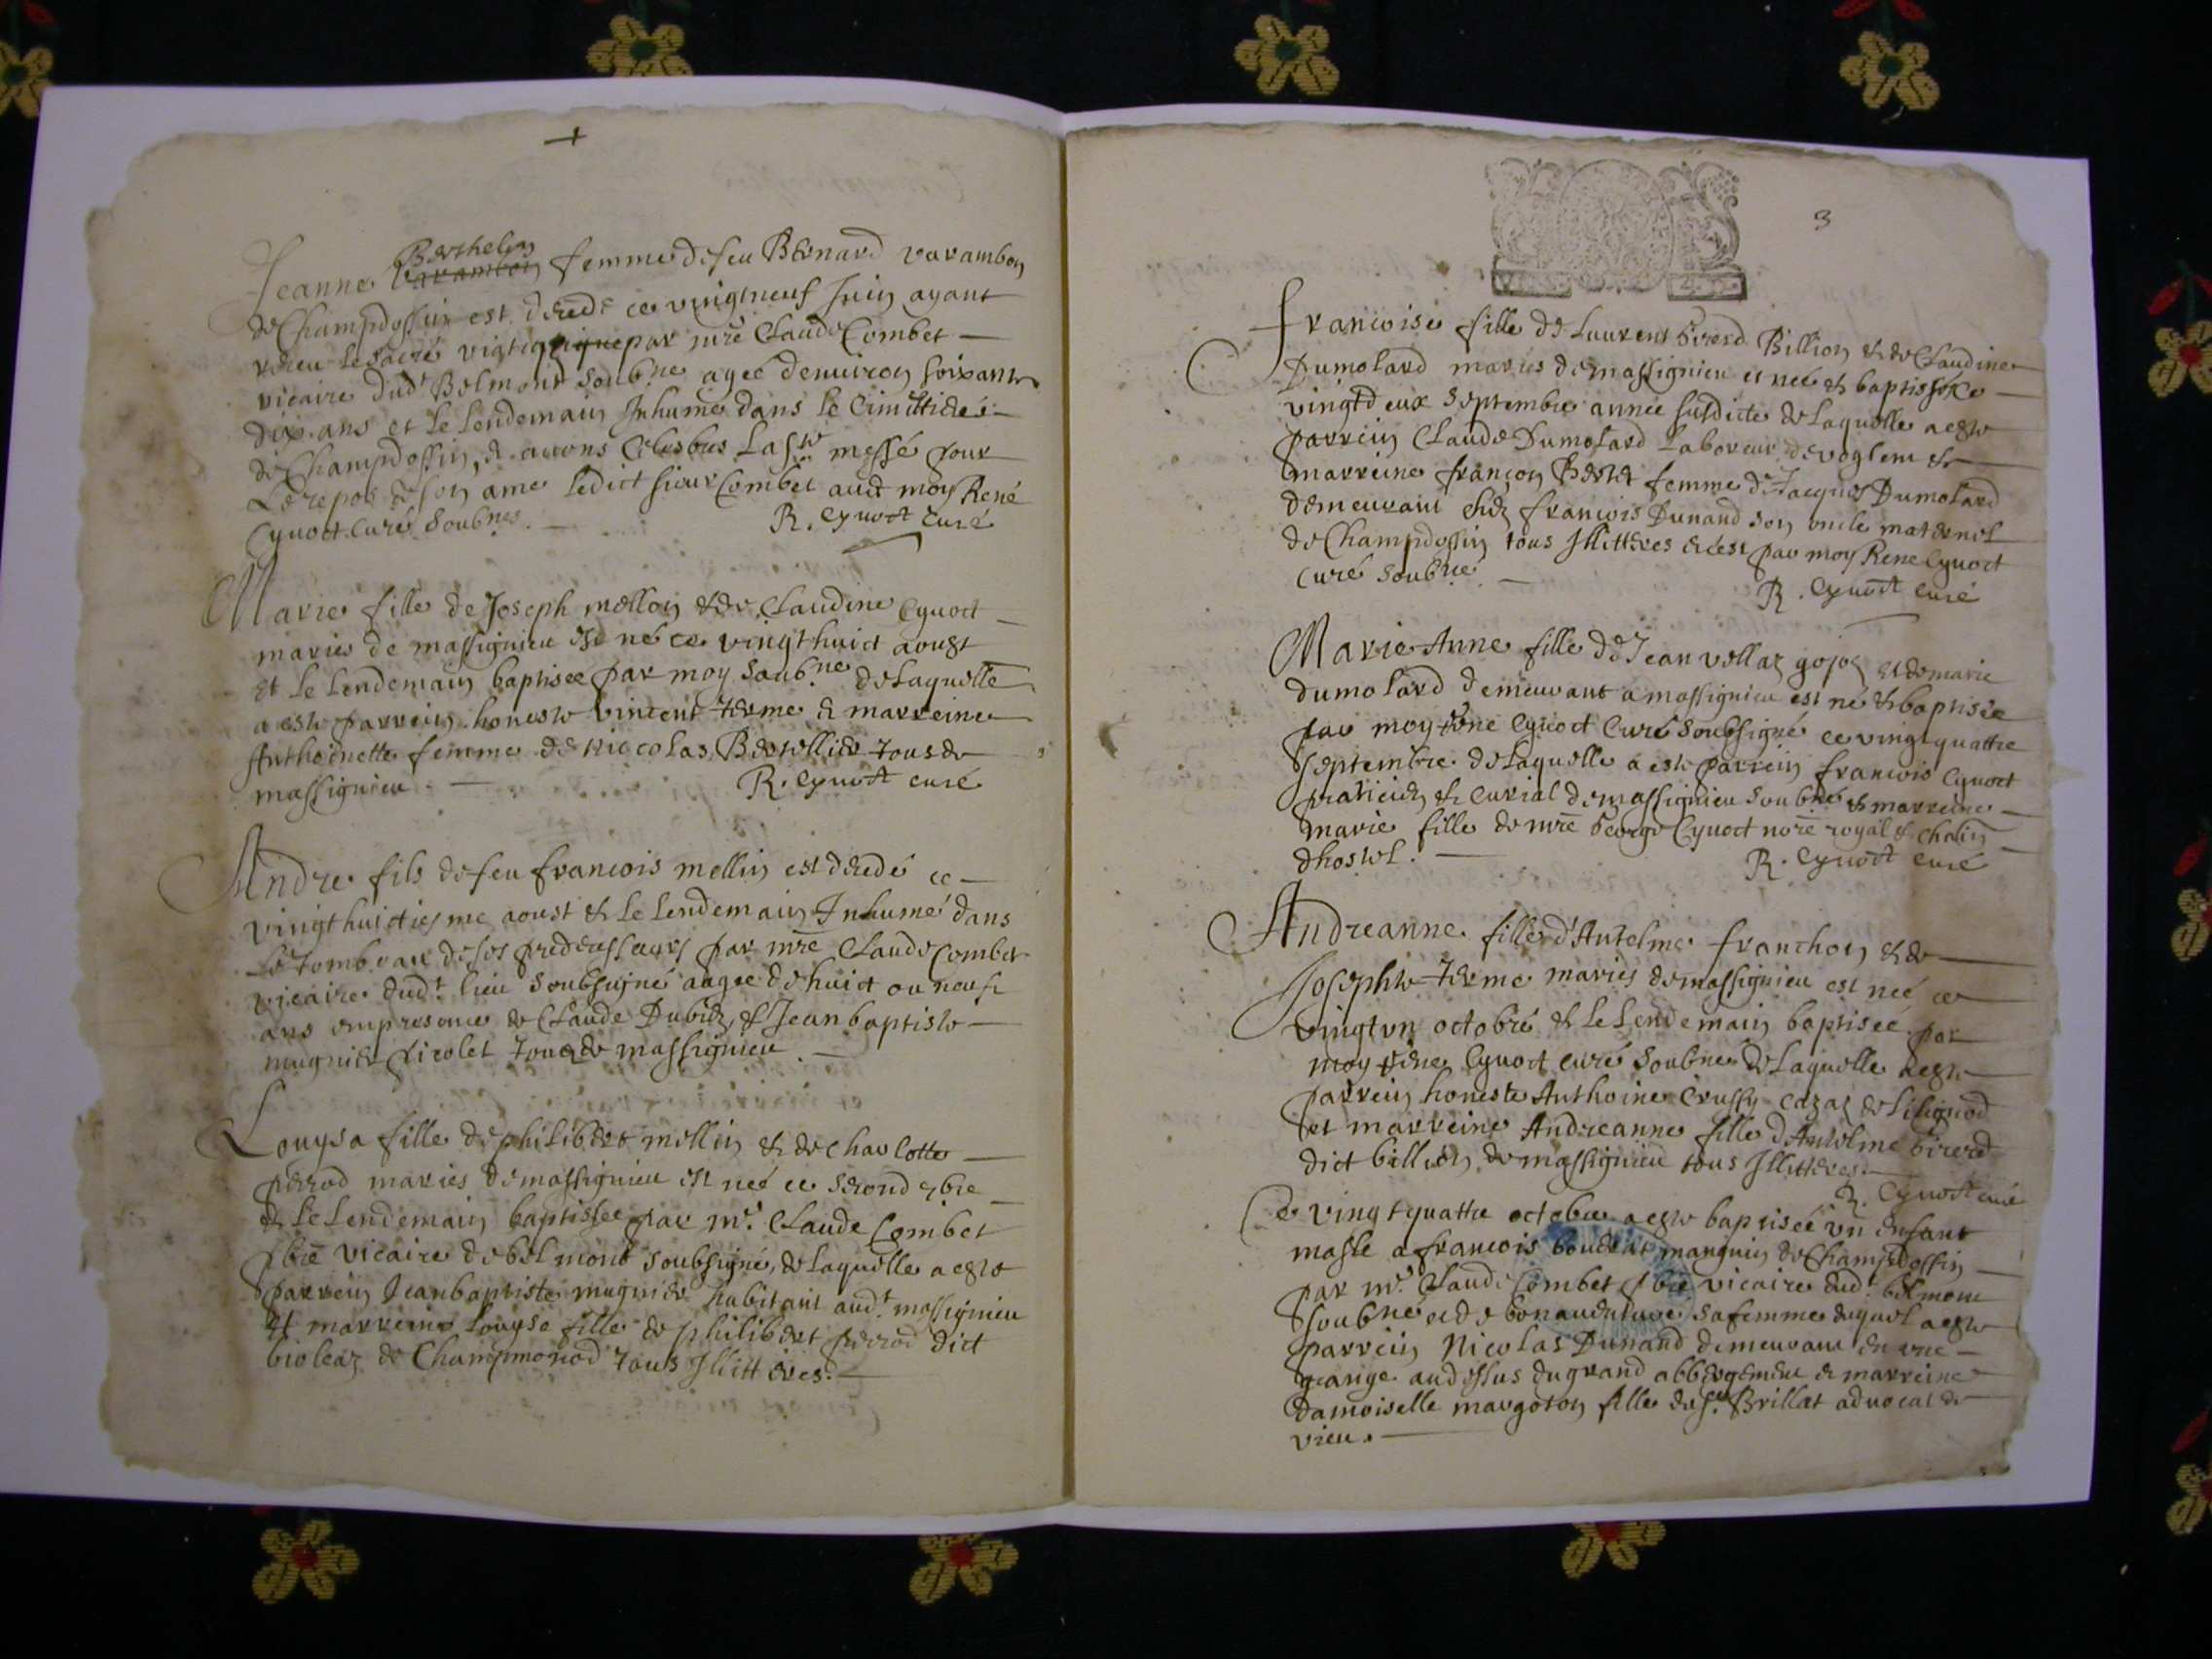 Berthelin
Jeanne Varambon femme de feu Bernard Varambon
de Champdossin est decedé ce vingtneuf Juin ayant
receu le sacré par mre Claude Combet
vicaire dudt Belmont soubne agée denuiron soixante
dix ans et le lendemain Inhume dans le Cimittiere
de Champdossin, & auons Celebres la ste messe pour
Le repos de son ame ledict sieur Combet auec moy René
Cyuoct Curé Soubnes.
R. Cyuoct curé
Marie fille de Joseph mellon & de Claudine Cyuoct
mariés de massignieu est né ce vingt huict aoust
Et le lendemain baptisée par moy soubne de laquelle
a este parrein honeste vincent Terme & marreine
Anthoinette femme de Niccolas tous de
massignieu.
R. Cyuoct curé
Andre fils de feu francois mellin est decedé ce
vingt huictiesme aoust & le lendemain Inhumé dans
Le Tombeau de ses predecesseurs par mre Claude Combet
vicaire dudt lieu soubsigné aagee de huict ou neuf
ans en presence de Claude Dubiez & Jean baptiste
mugnier Nicolet Tous de massignieu.
Louysa fille de philibert mellin & de charlotte
perrod mariés de massignieu est née ce second 7bre
& le lendemain baptissée par mr. Claude Combet
pbre vicaire de belmont soubsigné, de laquelle a este
parrein Jeanbaptiste mugnier habitant audt massignieu
et marreine Louyse fille de philibert perrod dict
bioleaz de Champmonod Tous Illitteres.
3
francoise fille de Laurent Girerd Billion & de Claudine
Dumolard mariés de massignieu est née & baptissée ce
vingtdeux Septembre année susdicte de laquelle a este
parrein Claude Dumolard laboreur de voglem &
marreine françon femme de Jacques Dumolard
demeurant chez francois Dunand son oncle maternel
de Champdossin tous Illitteres & c'est par moy Rene Cyuoct
Curé Soubne.
R. Cyuoct curé
Marie Anne fille de Jean vellaz gojoz et de marie
dumolard demeurant a massignieu est né & baptisée
par moy Rene Cyuoct Curé Soubsigné ce vingt quattre
Septembre de laquelle a este parrein francois Cyuoct
praticien & Curial de massignieu Soubné & marreine
marie fille de mre George Cyuoct nore royal & chalin
dhostel.
R. Cyuoct curé
Andreanne fille d'Antelme franchon & de
Josephte Terme mariés de massignieu est née ce
vingt vn octobre & le lendemain baptisée par
moy Rene Cyuoct curé Soubne de laquelle a este
parrein honeste Anthoine Crussy Cazaz de lilignod
et marreine Andreanne fille d'Antelme Girerd
dict billion de massignieu tous Illitteres.
R. Cyuoct curé
Ce vingt quattre octobre a este baptisée vn enfant
masle a francois bouderat manguin de Champdossin
par mr. Claude Combet pbre vicaire dudt belmont
soubne & de bonauenture sa femme duquel a este
parrein Nicolas Dunand demeurant en vne
grange au dessus du grand abbergement & marreine
Damoiselle margoton fille de sr. Brillat aduocat de
vieu.